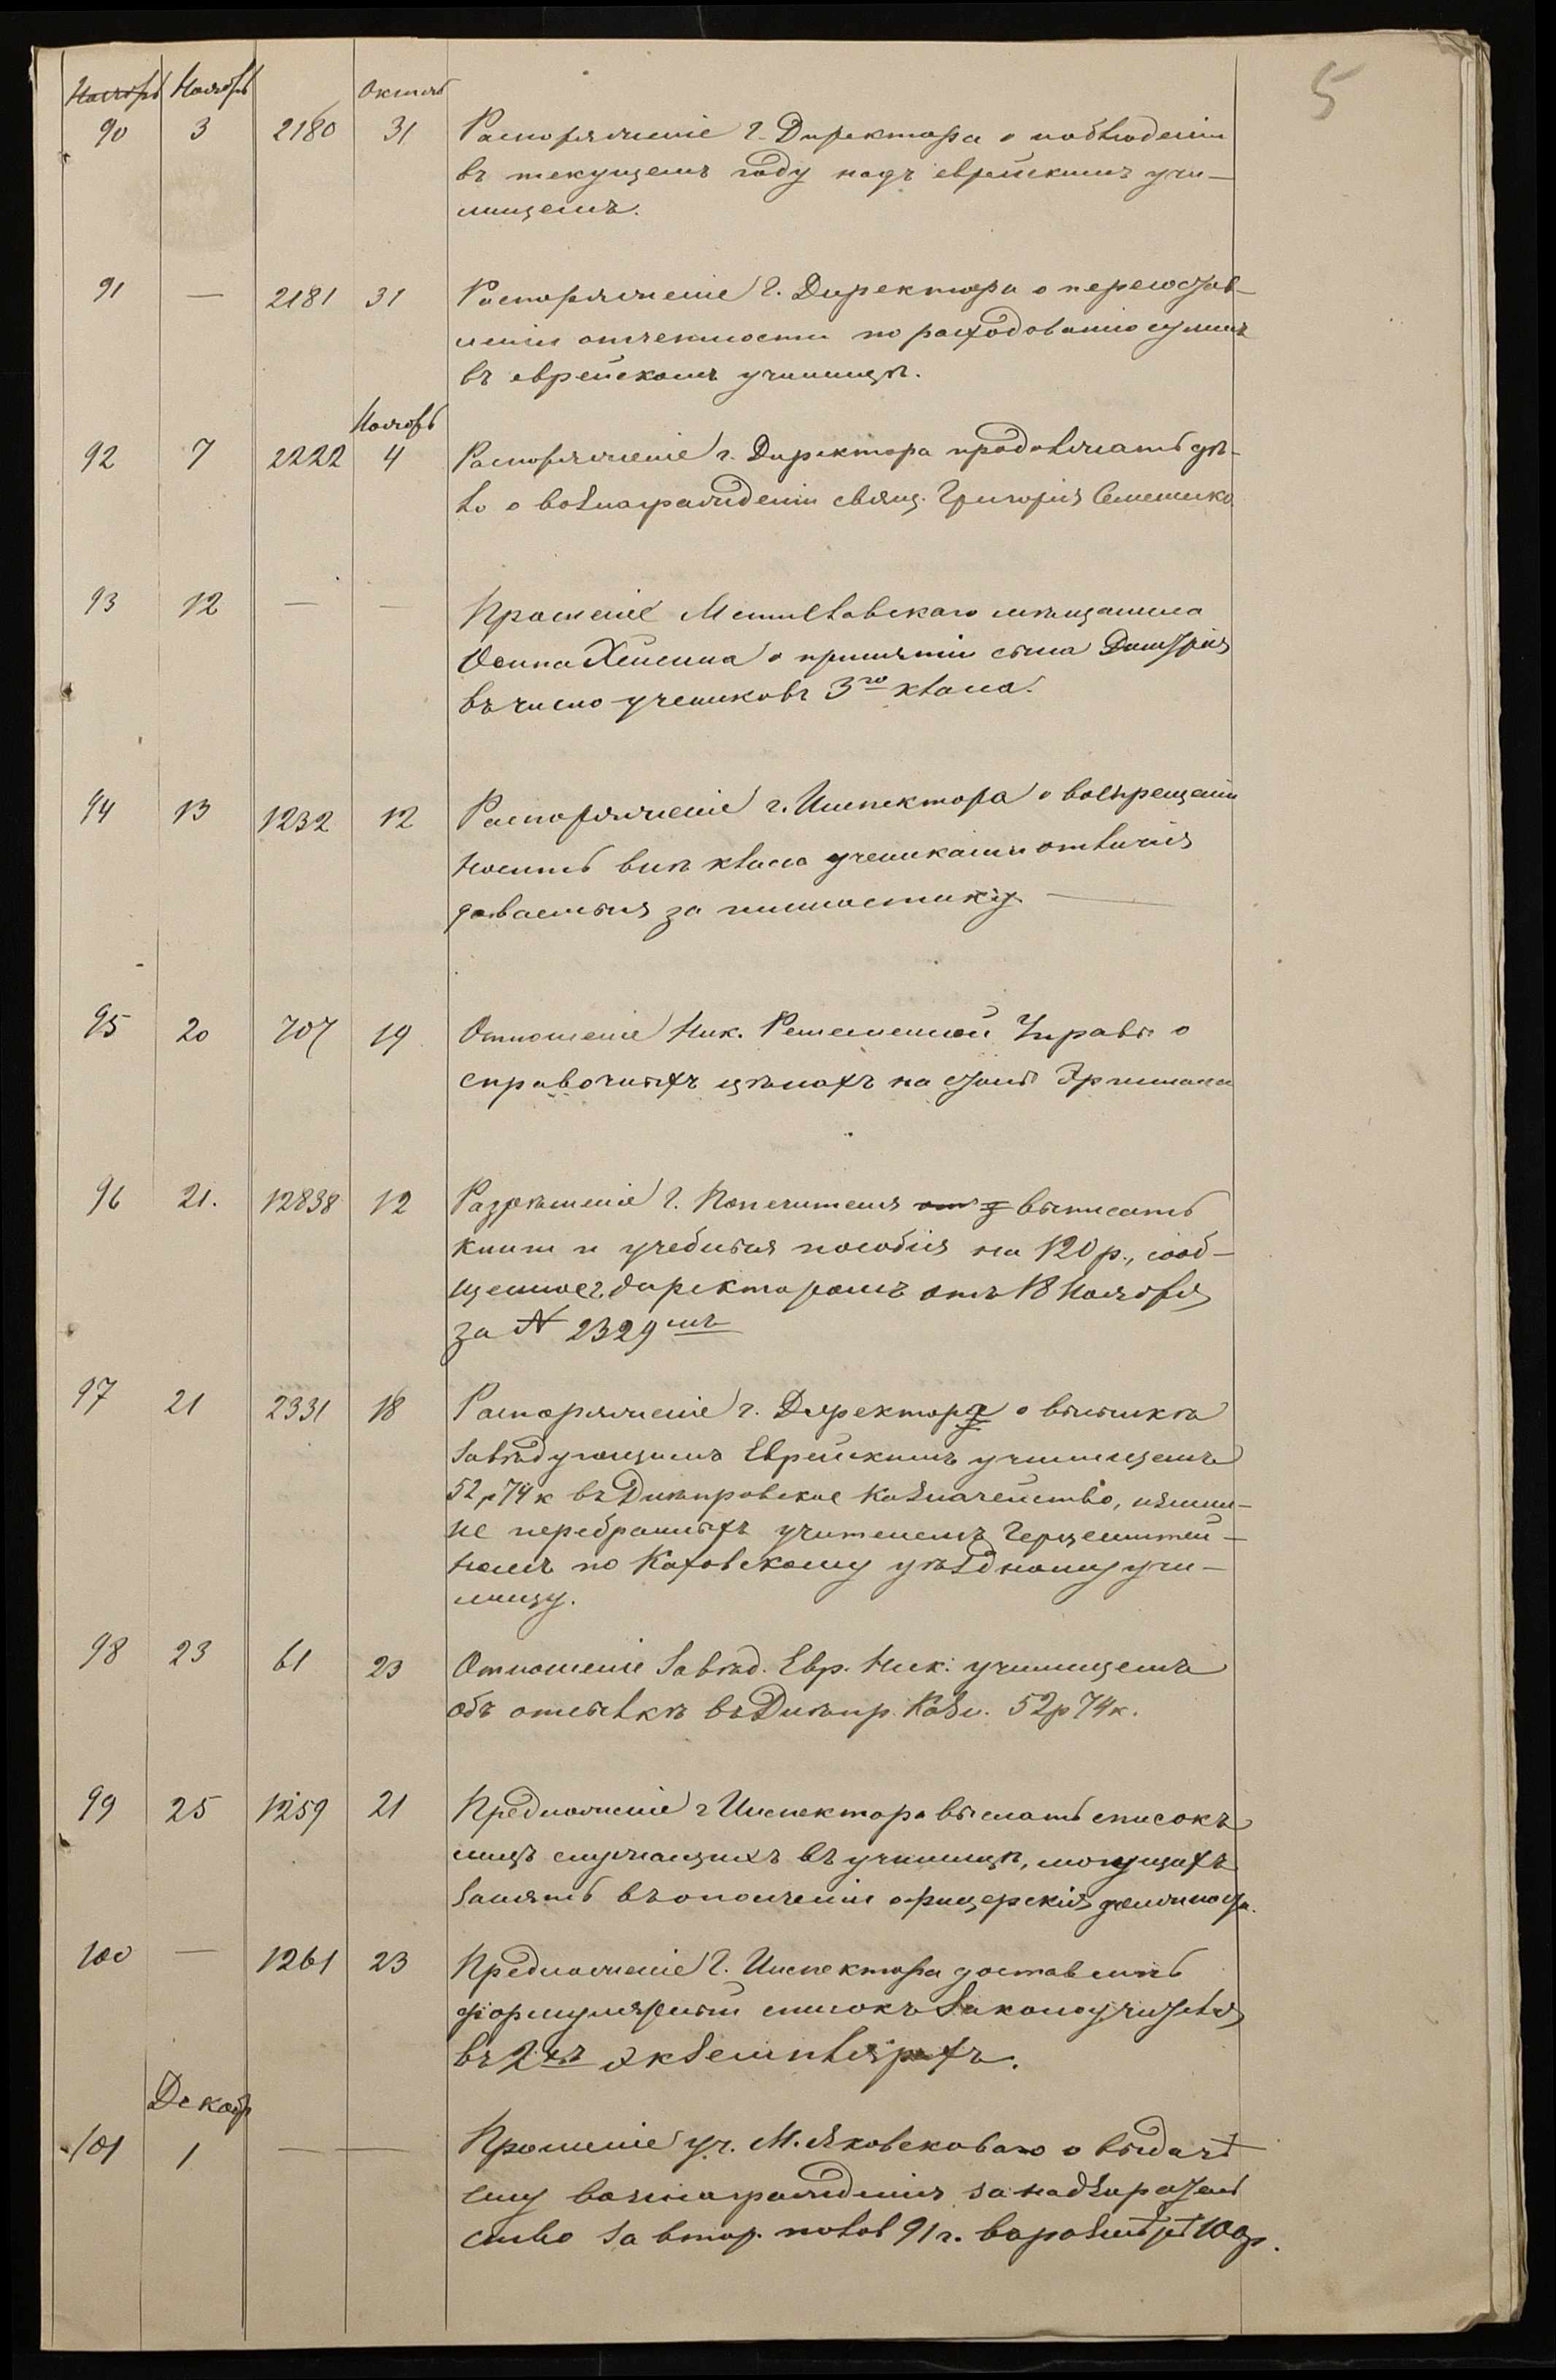 5
Ноябрь Ноябрь Октябр
90 3 2180 31 Распоряженіе Г. Директора о наблюденіи
въ текущемъ году надъ еврейскимъ учи-
лищемъ.
91 — 2181 31 Распоряженіе Г. Директора о
отчетности по расходованію суммъ
въ еврейскомъ училищѣ.
Ноябрь
92 7 2222 4 Распоряженіе г. Директора продолжать дѣ-
ло о вознагражденіи свящ. Григорія Семешко
93 12 — — Прошеніе Мстиславскаго мѣщанина
Осипа о принятіи сына Дмитрія
въ число учениковъ 3го класса.
94 13 1232 12 Распоряженіе г. Инспектора о воспрещеніи
носить внѣ класса учениками отличія
даваемыя за гимнастику —
95 20 707 19 Отношеніе Ник. Ремесленной Управы о
справочныхъ цѣнахъ на
96 21. 12838 12 Разрѣшеніе Г. Попечителя выписать
книги и учебныя пособія на 120 р., сооб-
щенное г. директоромъ отъ 18 Ноября
за № 2329мъ
97 21 2331 18 Распоряженіе г. Директора о высылкѣ
завѣдующимъ Еврейскимъ училищемъ
52 р 74 к въ Днѣпровское Казначейство, излиш-
не перебранныхъ учителемъ Герценштей-
номъ по Каховскому уѣздному учи-
лищу.
98 23 61 23 Отношеніе Завѣд. Евр. Ник. училищемъ
объ отсылкѣ въ Днѣпр. Казн. 52 р 74 к.
99 25 1259 21 Предложеніе г Инспектора выслать списокъ
лицъ служащихъ въ училищѣ, могущихъ
занять въ ополченіи офицерскія должности.
100 — 1261 23 Предложеніе Г. Инспектора доставить
формулярный списокъ Законоучителя
въ 2хъ экземплярахъ.
Декабр
101 1 — — Прошеніе уч. М. о выдачѣ
ему вознагражденія за
ство за втор. полов 91 г. въ размѣрѣ 100 р.